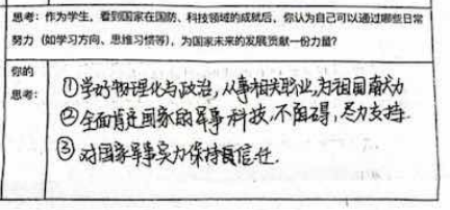 思考：作为学生，看到国家在国防、科技领域的成就后，你认为自己可以通过哪些日常
努力（如学习方向、思维习惯等），为国家未来的发展贡献一份力量？
你的
思考：
①学好物理化与政治，从事相关职业，为祖国奋力
②全面肯定国家的军事科技，不阻碍，尽力支持.
③对国家军事实力保持信任.